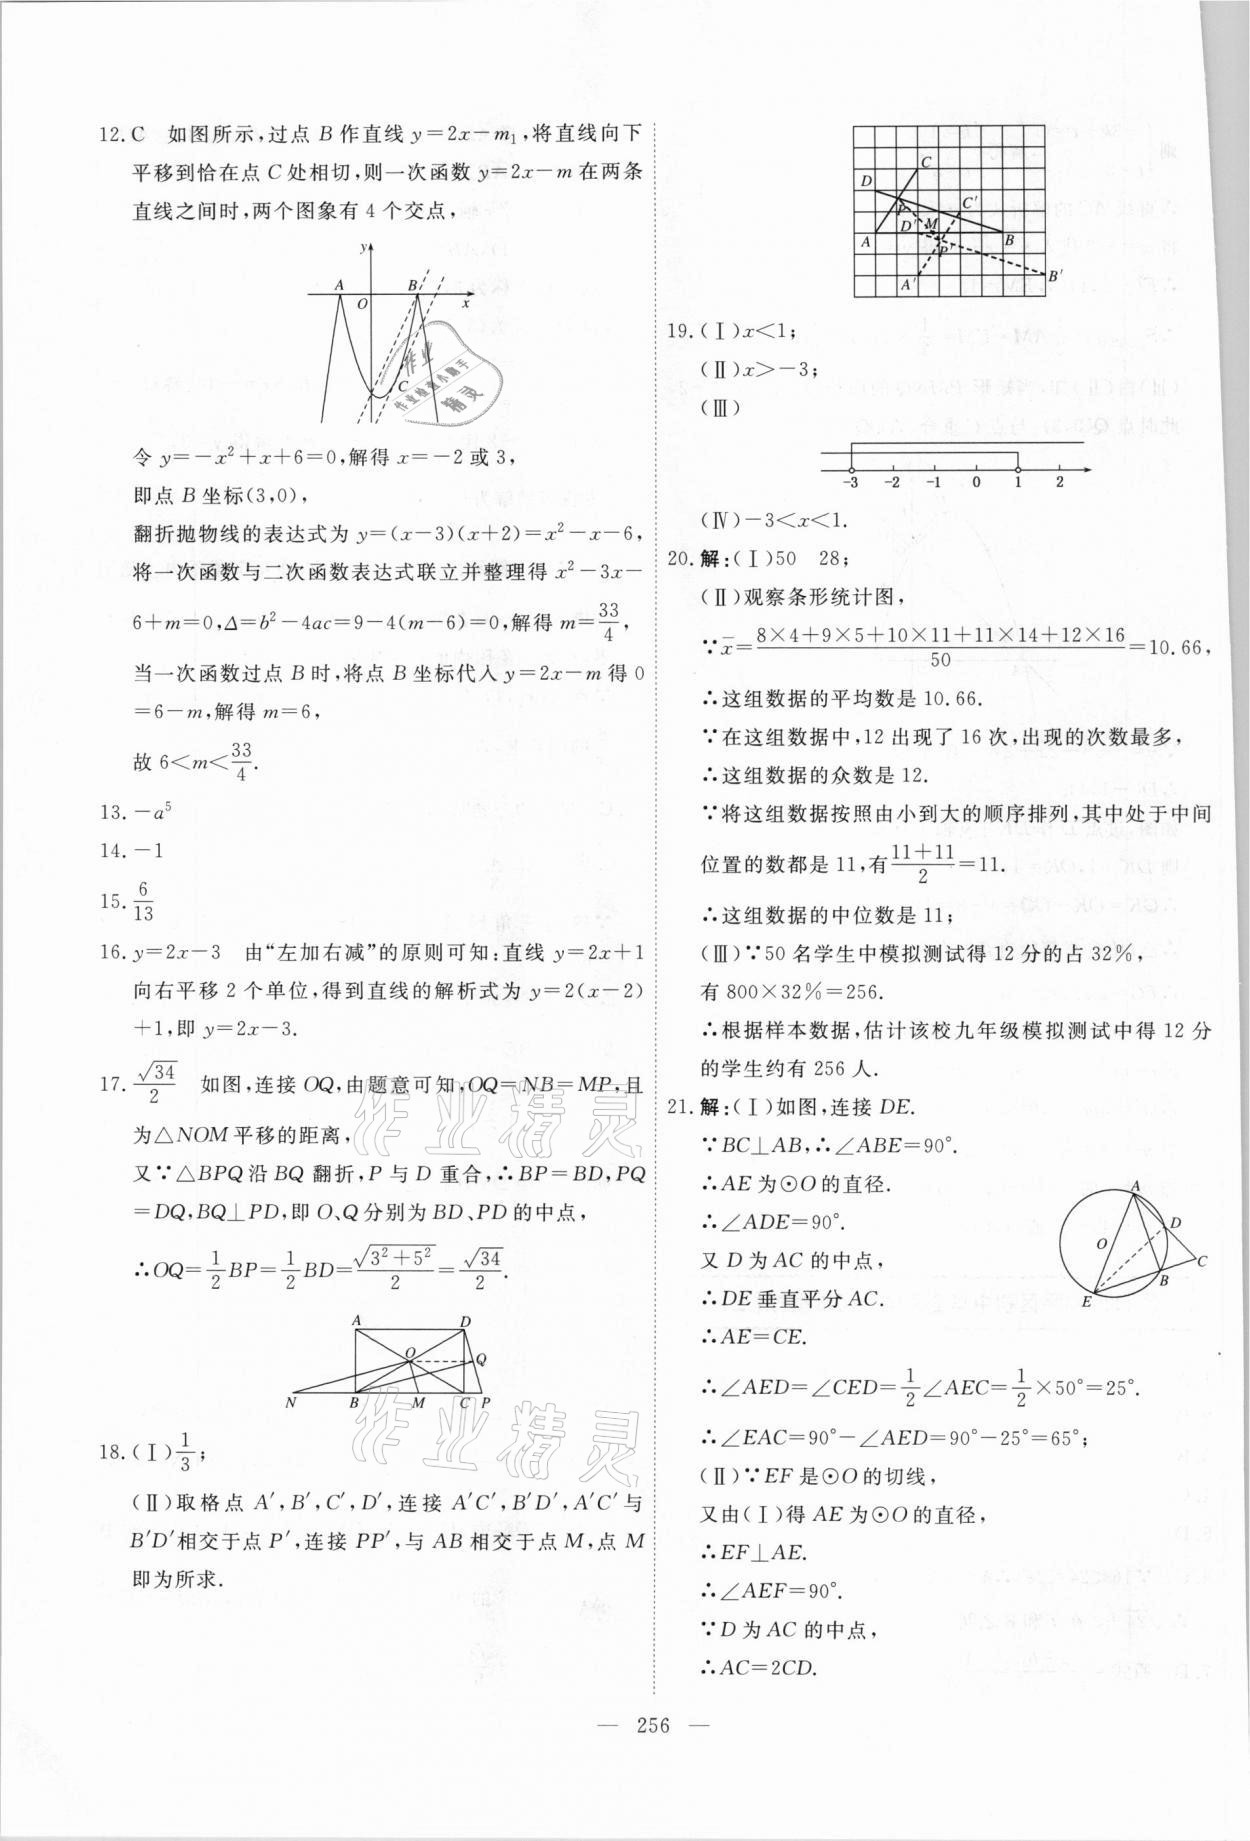 12. C　如图所示,过点 B 作直线 y=2x-m₁,将直线向下
平移到恰在点 C 处相切,则一次函数 y=2x-m 在两条
直线之间时,两个图象有 4 个交点,
y
A
B
O
x
C
作业
作业检查小助手
精灵
令 y=-x²+x+6=0,解得 x=-2 或 3,
即点 B 坐标(3,0),
翻折抛物线的表达式为 y=(x-3)(x+2)=x²-x-6,
将一次函数与二次函数表达式联立并整理得 x²-3x-
6+m=0,Δ=b²-4ac=9-4(m-6)=0,解得 m=33/4,
当一次函数过点 B 时,将点 B 坐标代入 y=2x-m 得 0
=6-m,解得 m=6,
故 6<m<33/4.
13. -a⁵
14. -1
15. 6/13
16. y=2x-3　由“左加右减”的原则可知:直线 y=2x+1
向右平移 2 个单位,得到直线的解析式为 y=2(x-2)
+1,即 y=2x-3.
17. √34/2　如图,连接 OQ,由题意可知,OQ=NB=MP,且
为△NOM 平移的距离,
又∵△BPQ 沿 BQ 翻折,P 与 D 重合,∴BP=BD,PQ
=DQ,BQ⊥PD,即 O、Q 分别为 BD、PD 的中点,
∴OQ=1/2BP=1/2BD=√(3²+5²)/2=√34/2.
作业精灵
A D
O
Q
N B M C P
作业精灵
18. (Ⅰ)1/3;
(Ⅱ)取格点 A′,B′,C′,D′,连接 A′C′,B′D′,A′C′与
B′D′相交于点 P′,连接 PP′,与 AB 相交于点 M,点 M
即为所求.
C
D
P
C′
D′ M
A
P′
B
A′
B′
19. (Ⅰ)x<1;
(Ⅱ)x>-3;
(Ⅲ)
-3 -2 -1 0 1 2
(Ⅳ)-3<x<1.
20. 解:(Ⅰ)50　28;
(Ⅱ)观察条形统计图,
∵x̄=(8×4+9×5+10×11+11×14+12×16)/50=10.66,
∴这组数据的平均数是 10.66.
∵在这组数据中,12 出现了 16 次,出现的次数最多,
∴这组数据的众数是 12.
∵将这组数据按照由小到大的顺序排列,其中处于中间
位置的数都是 11,有(11+11)/2=11.
∴这组数据的中位数是 11;
(Ⅲ)∵50 名学生中模拟测试得 12 分的占 32%,
有 800×32%=256.
∴根据样本数据,估计该校九年级模拟测试中得 12 分
的学生约有 256 人.
21. 解:(Ⅰ)如图,连接 DE.
∵BC⊥AB,∴∠ABE=90°.
∴AE 为⊙O 的直径.
∴∠ADE=90°.
又 D 为 AC 的中点,
∴DE 垂直平分 AC.
∴AE=CE.
∴∠AED=∠CED=1/2∠AEC=1/2×50°=25°.
∴∠EAC=90°-∠AED=90°-25°=65°;
(Ⅱ)∵EF 是⊙O 的切线,
又由(Ⅰ)得 AE 为⊙O 的直径,
∴EF⊥AE.
∴∠AEF=90°.
∵D 为 AC 的中点,
∴AC=2CD.
A
D
O
C
B
E
— 256 —